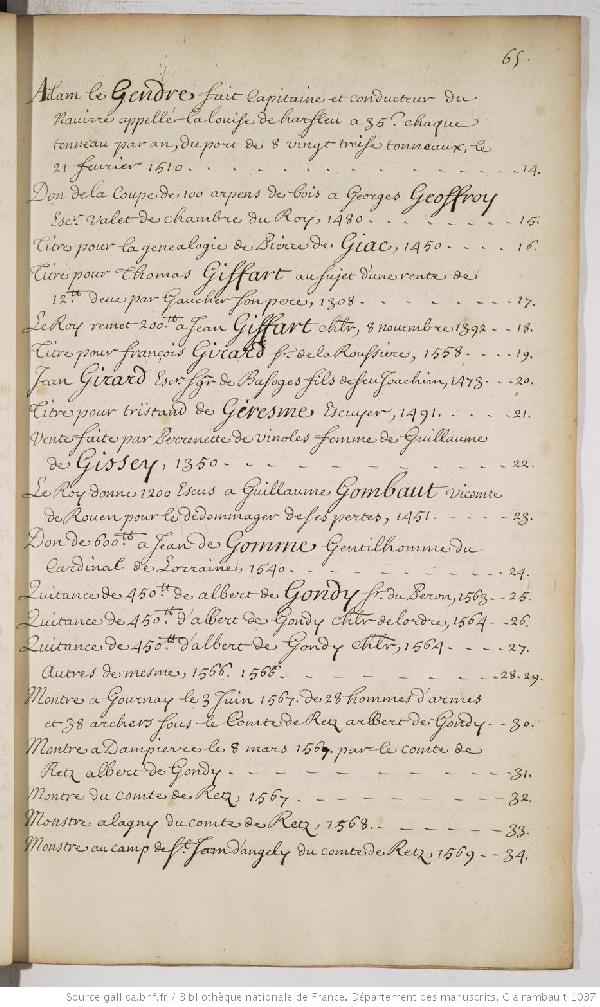 65.
Adam le Gendre fait Capitaine et conducteur du
Navirre appellé la louise de harfleu a 35ˢ. chaque
tonneau par an, du port de 8 vingt treise tonneaux, le
21 fevrier 1510 - - - - - - 14.
Don de la Coupe de 100 arpens de bois a Georges Geoffroy
Escr. valet de chambre du Roy, 1480 - - - - 15.
Titre pour la genealogie de Pierre de Giac, 1450 - - - - 16.
Titre pour Thomas Giffart au sujet d'une rente de
12ᵗᵗ deue par Gaucher son pere, 1308 - - - - - - 17.
Le Roy remet 200ᵗᵗ a Jean Giffart chlr, 8 novembre 1392 - - 18.
Titre pour françois Girard sr. de la Roussiere, 1558 - - - - 19.
Jean Girard Escr. sgr. de Basoges fils de feu Joachim, 1473 - - - 20.
Titre pour tristand de Geresme Escuyer, 1491 - - - - - 21.
Vente faite par Perrenette de vinoles femme de Guillaume
de Gissey, 1350 - - - - - - - 22.
Le Roy donne 1200 Escus a Guillaume Gombaut vicomte
de Rouen pour le dedommager de ses pertes, 1451 - - - - 23.
Don de 600ᵗᵗ a Jean de Gomme Gentilhomme du
Cardinal de Lorraine, 1540 - - - - - - - 24.
Quitance de 450ᵗᵗ de albert de Gondy sr. du Peron, 1563 - - 25.
Quitance de 450ᵗᵗ d'albert de Gondy chlr de lordre, 1564 - - 26.
Quitance de 450ᵗᵗ d'albert de Gondy chlr, 1564 - - - - 27.
Autres de mesme, 1566. 1566 - - - - - - - 28. 29.
Montre a Gournay le 3 Juin 1567. de 28 hommes d'armes
et 38 archers sous le Comte de Retz albert de Gondy - - 30.
Montre a Dampierre le 8 mars 1567. par le comte de
Retz albert de Gondy - - - - - - - - 31.
Montre du comte de Retz, 1567 - - - - - - - 32.
Monstre a lagny du comte de Retz, 1568 - - - - - - 33.
Monstre au camp de St. Jean d'angely du comte de Retz, 1569 - - 34.
Source gallica.bnf.fr / Bibliothèque nationale de France. Département des manuscrits. Clairambault 1037